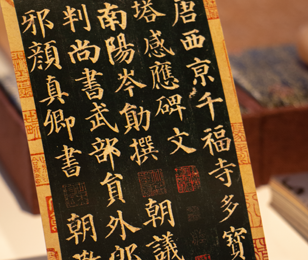 唐西京千福寺多寶
塔感應碑文
南陽岑勛撰 朝議
判尚書武部員外郎
邪顏真卿書 朝